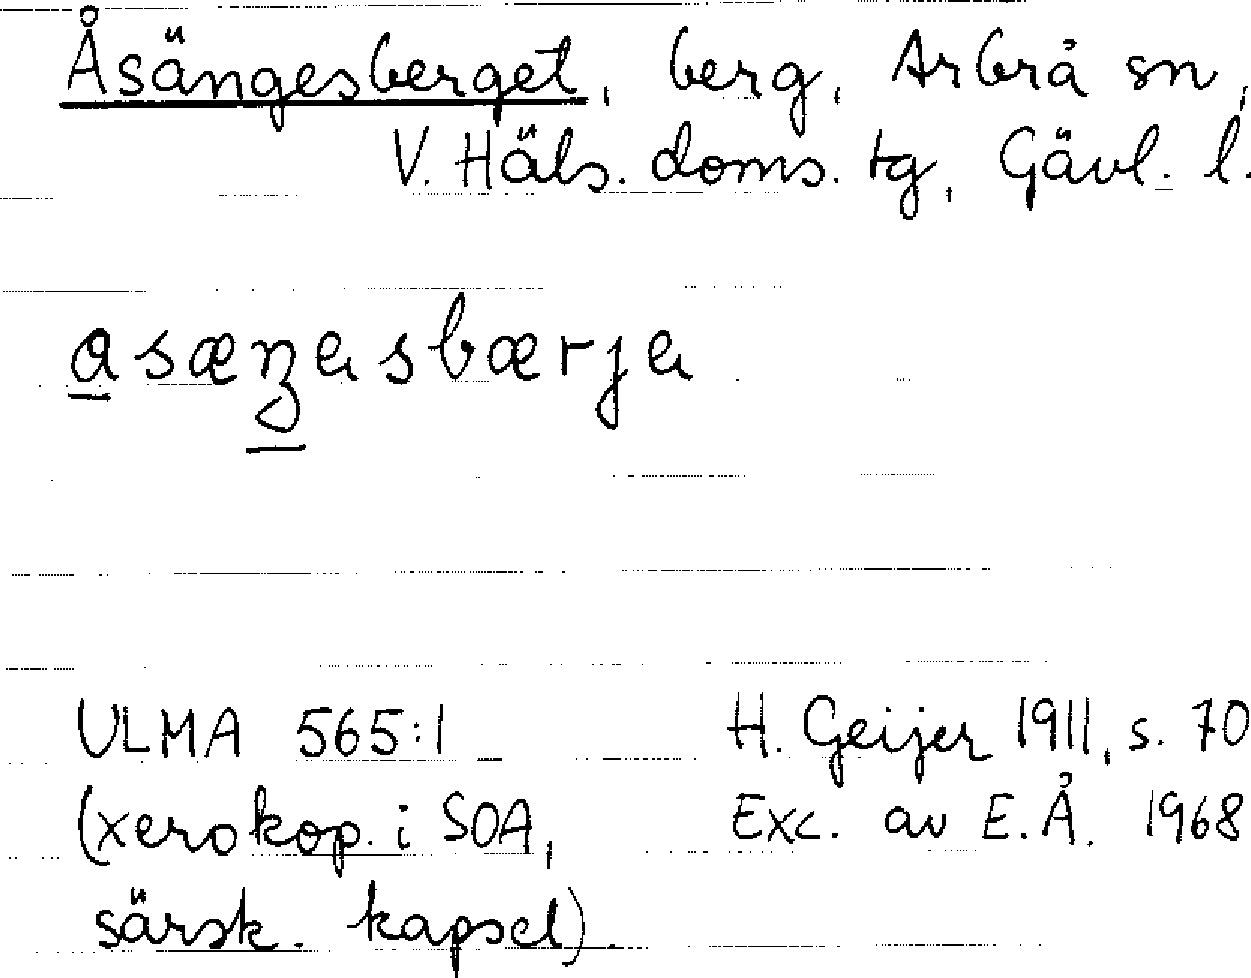 Åsängesberget, berg, Arbrå sn,
V. Häls. doms. tg, Gävl. l.
ULMA 565:1 H. Geijer 1911, s. 70
(xerokop. i SOA, Exc. av E.Å. 1968
särsk. kapsel).